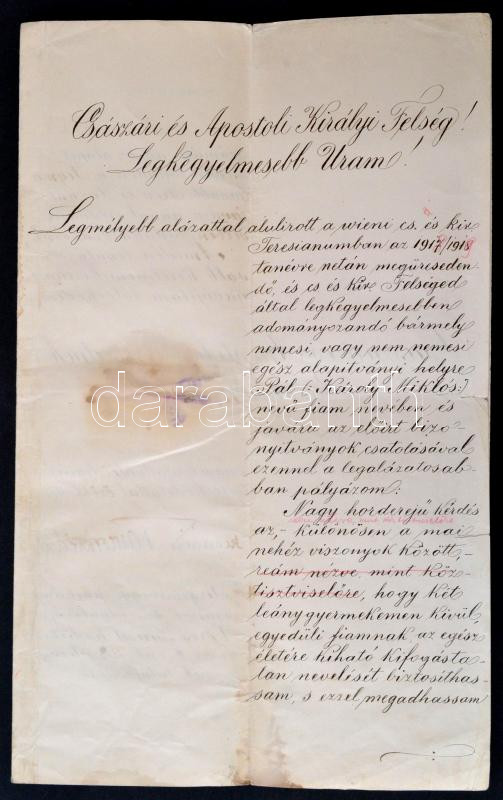 Császári és Apostoli Királyi Felség!
Legkegyelmesebb Uram!
Legmélyebb alázattal alulirott a wieni cs. és kir.
Teresianumban az 1917/1918
tanévre netán megüreseden-
dő, és cs és kir Felséged
által legkegyelmesebben
adományozandó bármely
nemesi vagy nem nemesi
egész alapitványi helyre
Pál (: Károly Miklós:)
nevű fiam nevében és
javára az előirt bizo-
nyitványok csatolásával
ezennel a legalázatosab-
ban pályázom:
Nagy horderejű kérdés
az,- különösen a mai
nehéz viszonyok között,-
reám nézve, mint köz-
tisztviselőre, hogy két
leánygyermekemen kivül,
egyedüli fiamnak, az egész
életére kiható kifogásta-
lan nevelését biztosithas-
sam, s ezzel megadhassam
darabanth